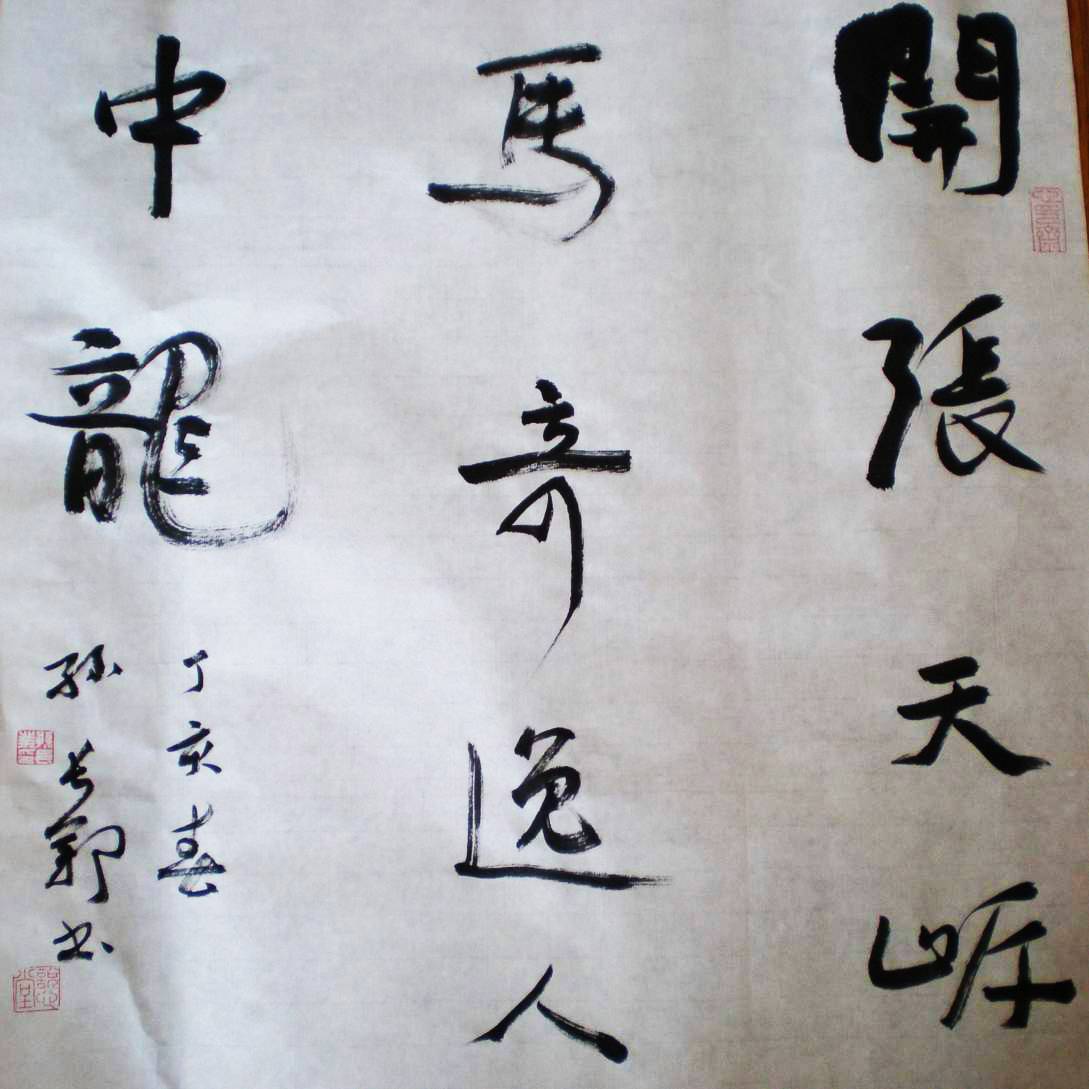 開張天岸
馬奇逸人
中龍
丁亥春
孫長郭书